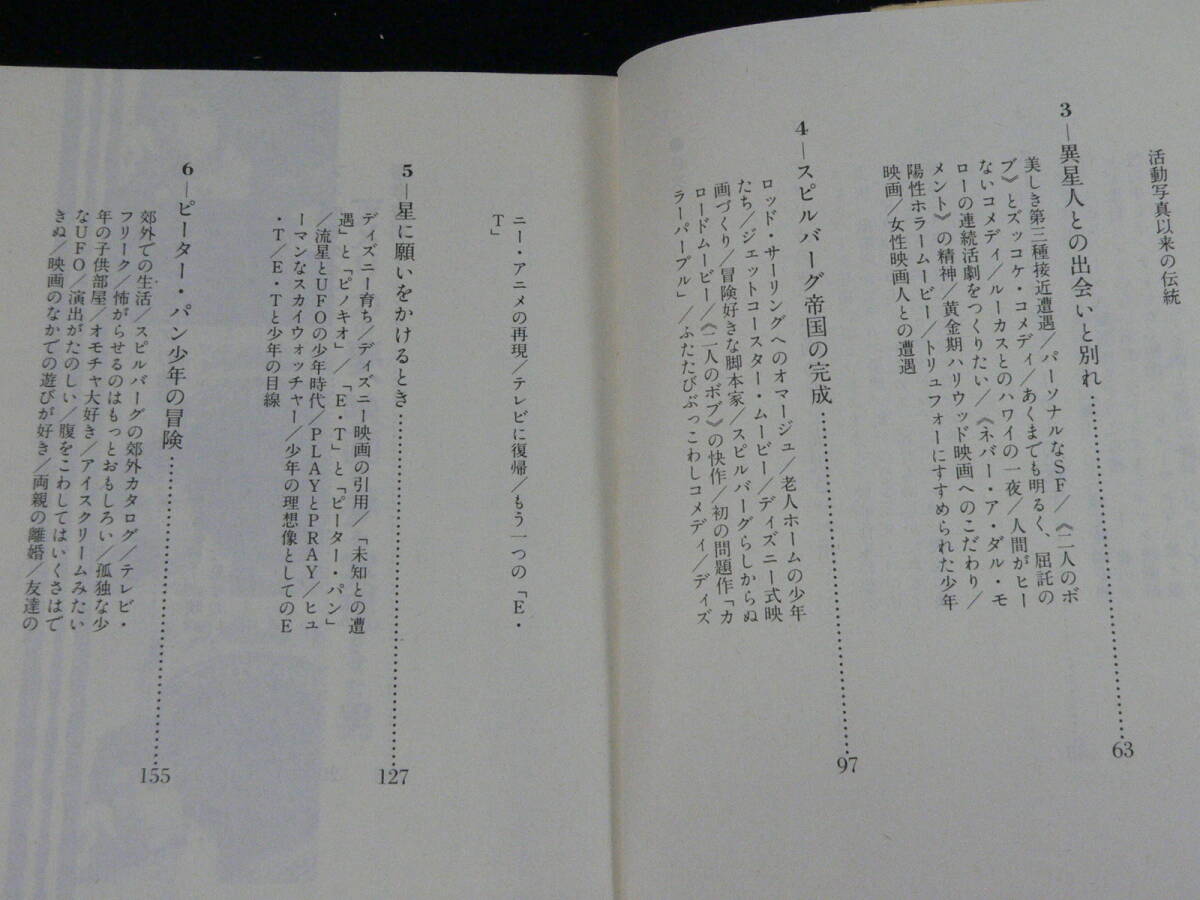 活動写真以来の伝統
3―異星人との出会いと別れ……………………63
美しき第三種接近遭遇／パーソナルなSF／《二人のボ
ブ》とズッコケ・コメディ／あくまでも明るく、屈託の
ないコメディ／ルーカスとのハワイの一夜／人間がヒー
ローの連続活劇をつくりたい／《ネバー・ア・ダル・モ
メント》の精神／黄金期ハリウッド映画へのこだわり／
陽性ホラームービー／トリュフォーにすすめられた少年
映画／女性映画人との遭遇
4―スピルバーグ帝国の完成……………………97
ロッド・サーリングへのオマージュ／老人ホームの少年
たち／ジェットコースター・ムービー／ディズニー式映
画づくり／冒険好きな脚本家／スピルバーグらしからぬ
ロードムービー／《二人のボブ》の快作／初の問題作「カ
ラーパープル」／ふたたびぶっこわしコメディ／ディズ
ニー・アニメの再現／テレビに復帰／もう一つの「E・
T」
5―星に願いをかけるとき……………………127
ディズニー育ち／ディズニー映画の引用／「未知との遭
遇」と「ピノキオ」／「E・T」と「ピーター・パン」
／流星とUFOの少年時代／PLAYとPRAY／ヒュ
ーマンなスカイウォッチャー／少年の理想像としてのE
・T／E・Tと少年の目線
6―ピーター・パン少年の冒険……………………155
郊外での生活／スピルバーグの郊外カタログ／テレビ・
フリーク／怖がらせるのはもっとおもしろい／孤独な少
年の子供部屋／オモチャ大好き／アイスクリームみたい
なUFO／演出がたのしい／腹をこわしてはいくさはで
きぬ／映画のなかでの遊びが好き／両親の離婚／友達の